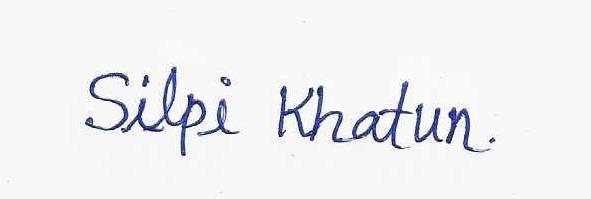 Silpi Khatun.